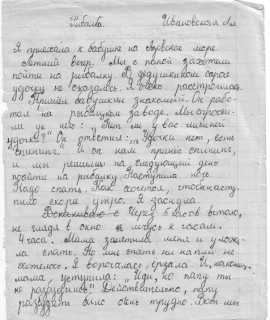 Рыбалка. Ивановская Ал
Я приехала к бабушке на Азовское море.
Летний вечер. Мы с папой захотели
пойти на рыбалку. В дедушкином сарае
удочек не оказалось. Я очень расстроилась.
Пришёл бабушкин знакомый. Он рабо-
тал на рыбацком заводе. Мы спроси-
ли у него: "Нет ли у вас лишней
удочки?" Он ответил: "Удочки нет, есть
спининг". И он нам принёс спининг,
и мы решили на следующий день
пойти на рыбалку. Наступила ночь.
Надо спать. Как хочется, чтобы насту-
пило скоро утро. Я заснула.
Через 6 часов встаю,
не глядя в окно к часам.
4 часа. Мама заметила меня и уложи-
ла спать. Но мне спать ни капли не
хотелось. Я ворочалась, кричала. И, наконец,
мама, уступила: "Иди, но папу ты
не разбудишь". Действительно, папу
разбудить было очень трудно. Вот мы